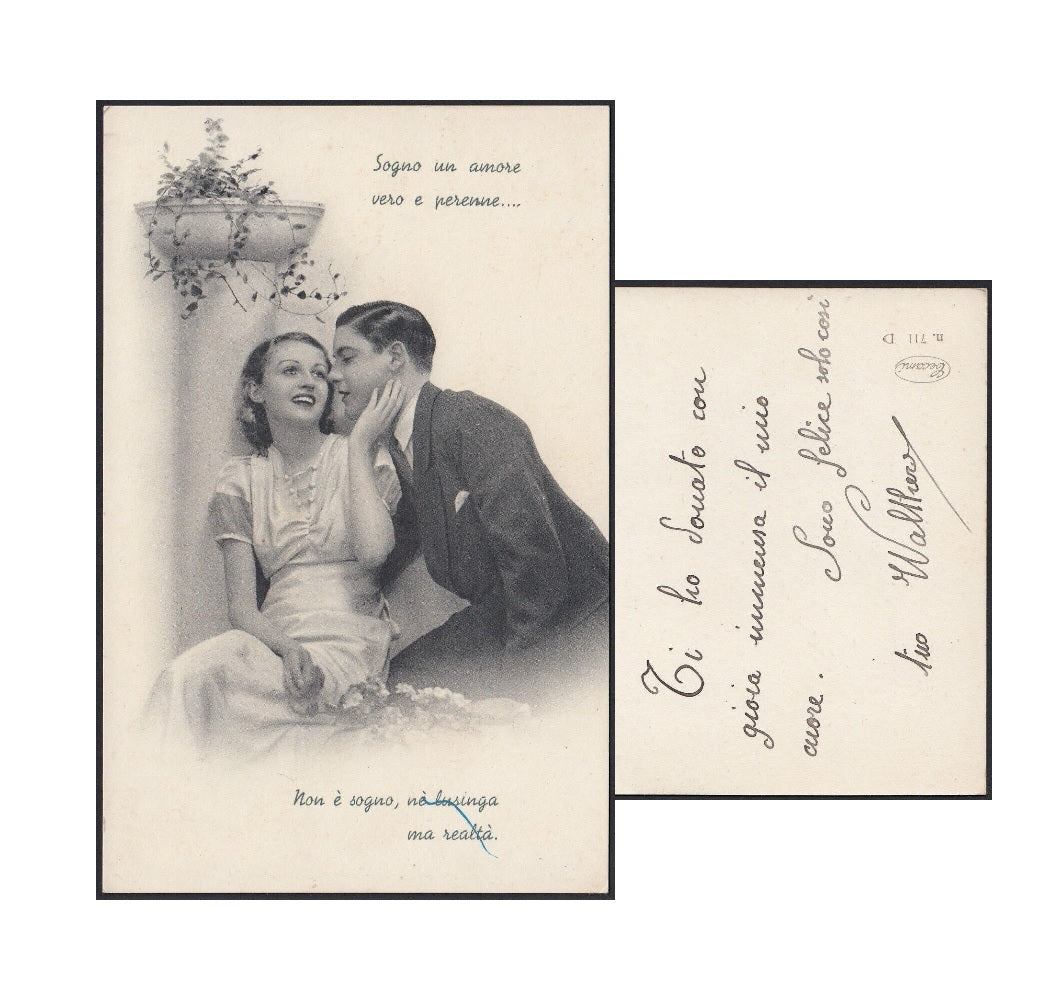 Sogno un amore
vero e perenne....
Non è sogno, nè lusinga
ma realtà.
Ti ho donato con
gioia immensa il mio
cuore. Sono felice solo così
tuo Walthero
Cecami
n. 711 D